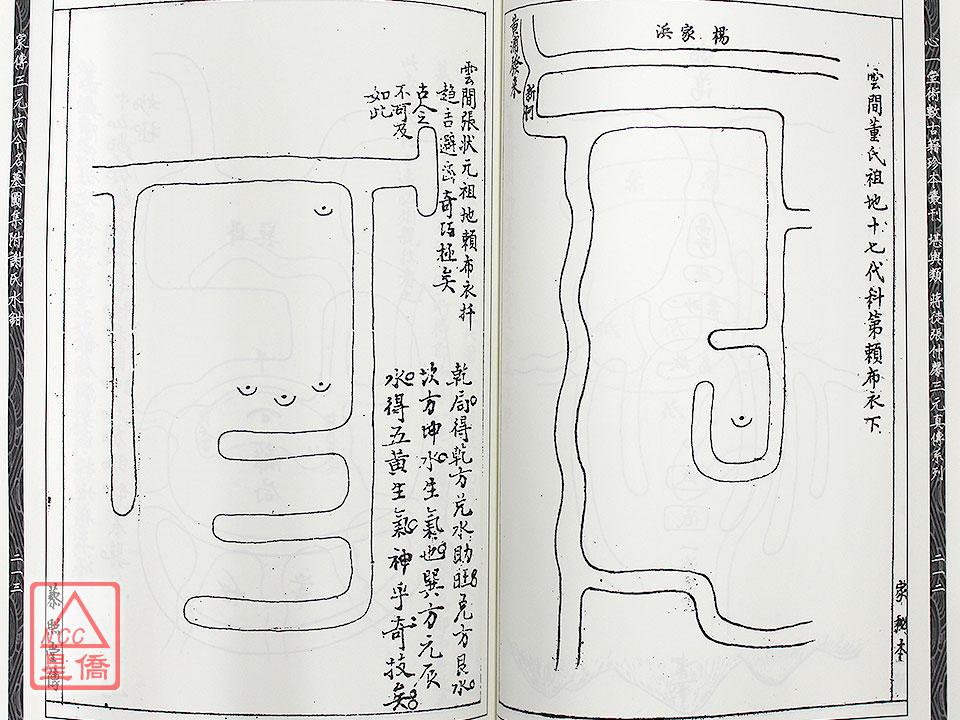 心一堂術數古籍珍本叢刊 堪輿類 蔣徒張仲馨三元真傳系列
二一二
雲間董氏祖地十七代科第賴布衣下
家秘本
楊家浜
黃浦
雲間張狀元祖地賴布衣扦
趨吉避凶奇巧極矣
古今之
不可及
如此
乾局得乾方兌水助旺兌方艮水
坎方坤水生氣也巽方元辰
水得五黃生氣神乎奇技矣
家傳三元古今名墓圖集附謝氏水鉗
二一三
CC
星僑